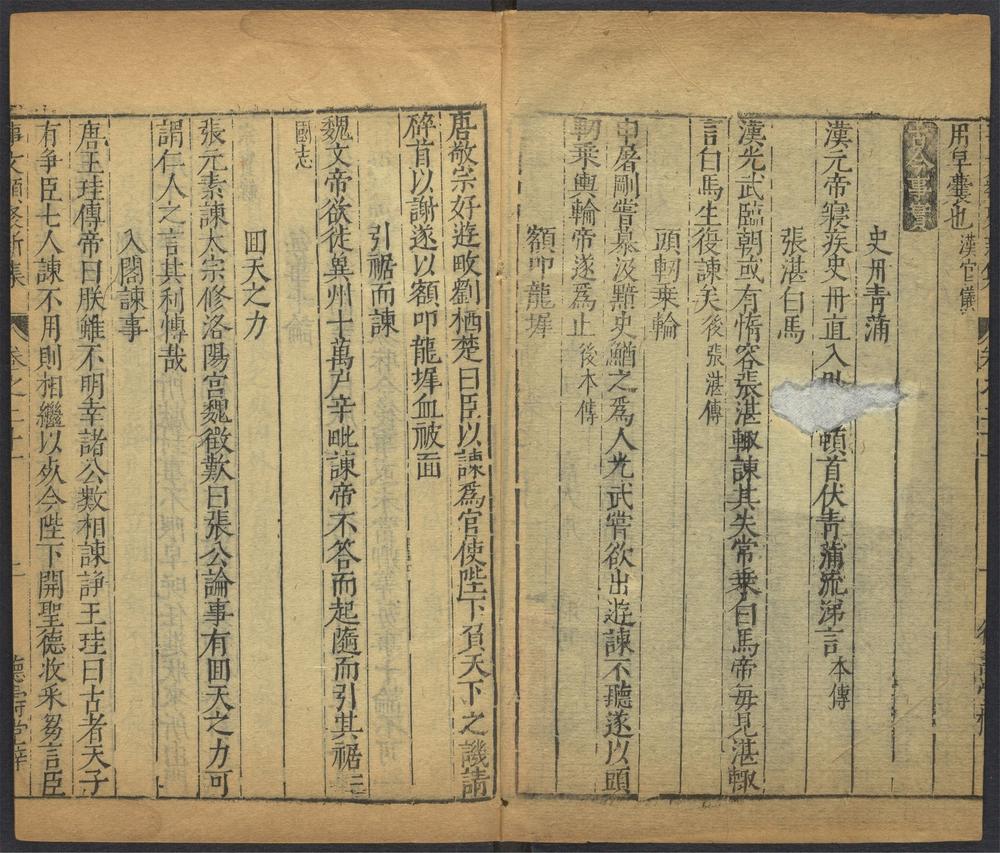 用皁囊也漢官儀
古今事實
史丹青蒲
漢元帝寢疾史丹直入卧頓首伏青蒲流涕言本傳
張湛白馬
漢光武臨朝或有惰容張湛輙諫其失常乗白馬帝毎見湛輙
言白馬生復諫矣後張湛傳
頭軔乗輪
申屠剛嘗慕汲黯史鰌之爲人光武嘗欲出遊諫不聽遂以頭
軔乘輿輪帝遂爲止後本傳
額叩龍墀
唐敬宗好遊畋劉栖楚曰臣以諫爲官使陛下負天下之譏請
碎首以謝遂以額叩龍墀血被面
引裾而諫
魏文帝欲徙異州十萬戸辛毗諫帝不答而起隨而引其裾三
國志
囬天之力
張元素諫太宗修洛陽宫魏徴歎曰張公論事有囬天之力可
謂仁人之言其利愽哉
入閤諫事
唐王珪傳帝曰朕雖不明幸諸公數相諫諍王珪曰古者天子
有爭臣七人諫不用則相繼以死今陛下開聖德收采芻言臣
事文類聚新集 卷之二十一 德壽堂梓